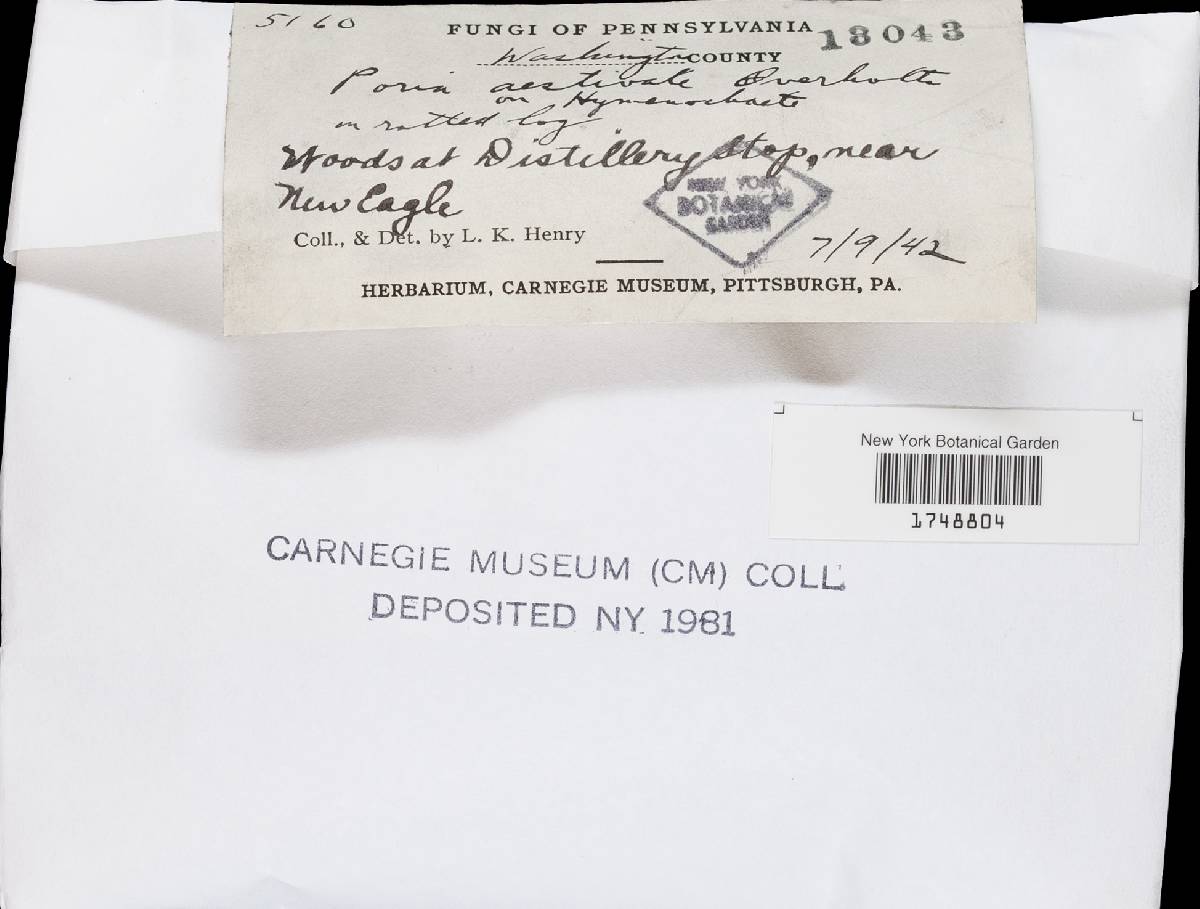 5160
FUNGI OF PENNSYLVANIA 13043
Washington COUNTY
Poria aestivale Overholts
on Hymenochaete
on rotted log
Woods at Distillery Stop, near
New Eagle
NEW YORK
BOTANICAL
GARDEN
Coll., & Det. by L. K. Henry
7/9/42
HERBARIUM, CARNEGIE MUSEUM, PITTSBURGH, PA.
New York Botanical Garden
1748804
CARNEGIE MUSEUM (CM) COLL.
DEPOSITED NY 1981